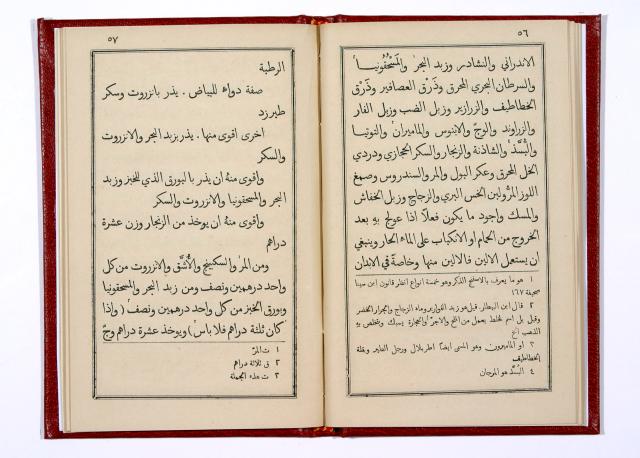 ٥٦
الاندراني والنشادر وزبد البحر والمَسْحَقُونيا
والسرطان البحري المحرق وذَرْق العصافير وذَرْق
الخطاطيف والزرازير وزبل الضب وزبل الفار
والزراوند والوجّ والابنوس والماميران والتوتيا
والبُسَّذ والشاذنة والزنجار والسكر الحجازي ودردي
الخل المحرق وعكر البول والمر والسندروس وصمغ
اللوز المرّ ولبن الخس البري والزجاج وزبل الخفاش
والمسك واجود ما يكون فعلاً اذا عولج به بعد
الخروج من الحمام او الانكباب على الماء الحار وينبغي
ان يستعمل الالين فالالين منها وخاصة في الابدان
١ هو ما يعرف بالملح الذكر وهو خمسة انواع انظر قانون ابن سينا
صحيفة ١٦٧
٢ قال ابن البيطار قيل هو زبد القوارير وماء الزجاج والجرار الخضر
وقيل بل اسم لخلط يعمل من الملح والاجر والحجارة يسبك ويتخلص به
الذهب اﻫ
٣ او المامیرون وهو المسمى ايضاً اطريلال ورجل الطير وبقلة
الخطاطيف
٤ البُسَّذ هو المرجان
٥٧
الرطبة
صفة دواء للبياض. يذر بانزروت وسكر
طبرزد
اخرى اقوى منها. يذر بزبد البحر والانزروت
والسكر
واقوى منهُ ان يذر بالبورق الذي للخبز وزبد
البحر والمسحقونيا والانزروت والسكر
واقوى منهُ ان يوخذ من الزنجار وزن عشرة
دراهم
ومن المر والسكبينج والأُشَّق والانزروت من كل
واحد درهمين ونصف ومن زبد البحر والمسحقونيا
وبورق الخبز من كل واحد درهمين ونصف (واذا
كان ثلثة دراهم فلا باس) ويوخذ عشرة دراهم وجّ
١ ت المرّ
٢ ق ثلاثة دراهم
٣ ت هذه الجملة